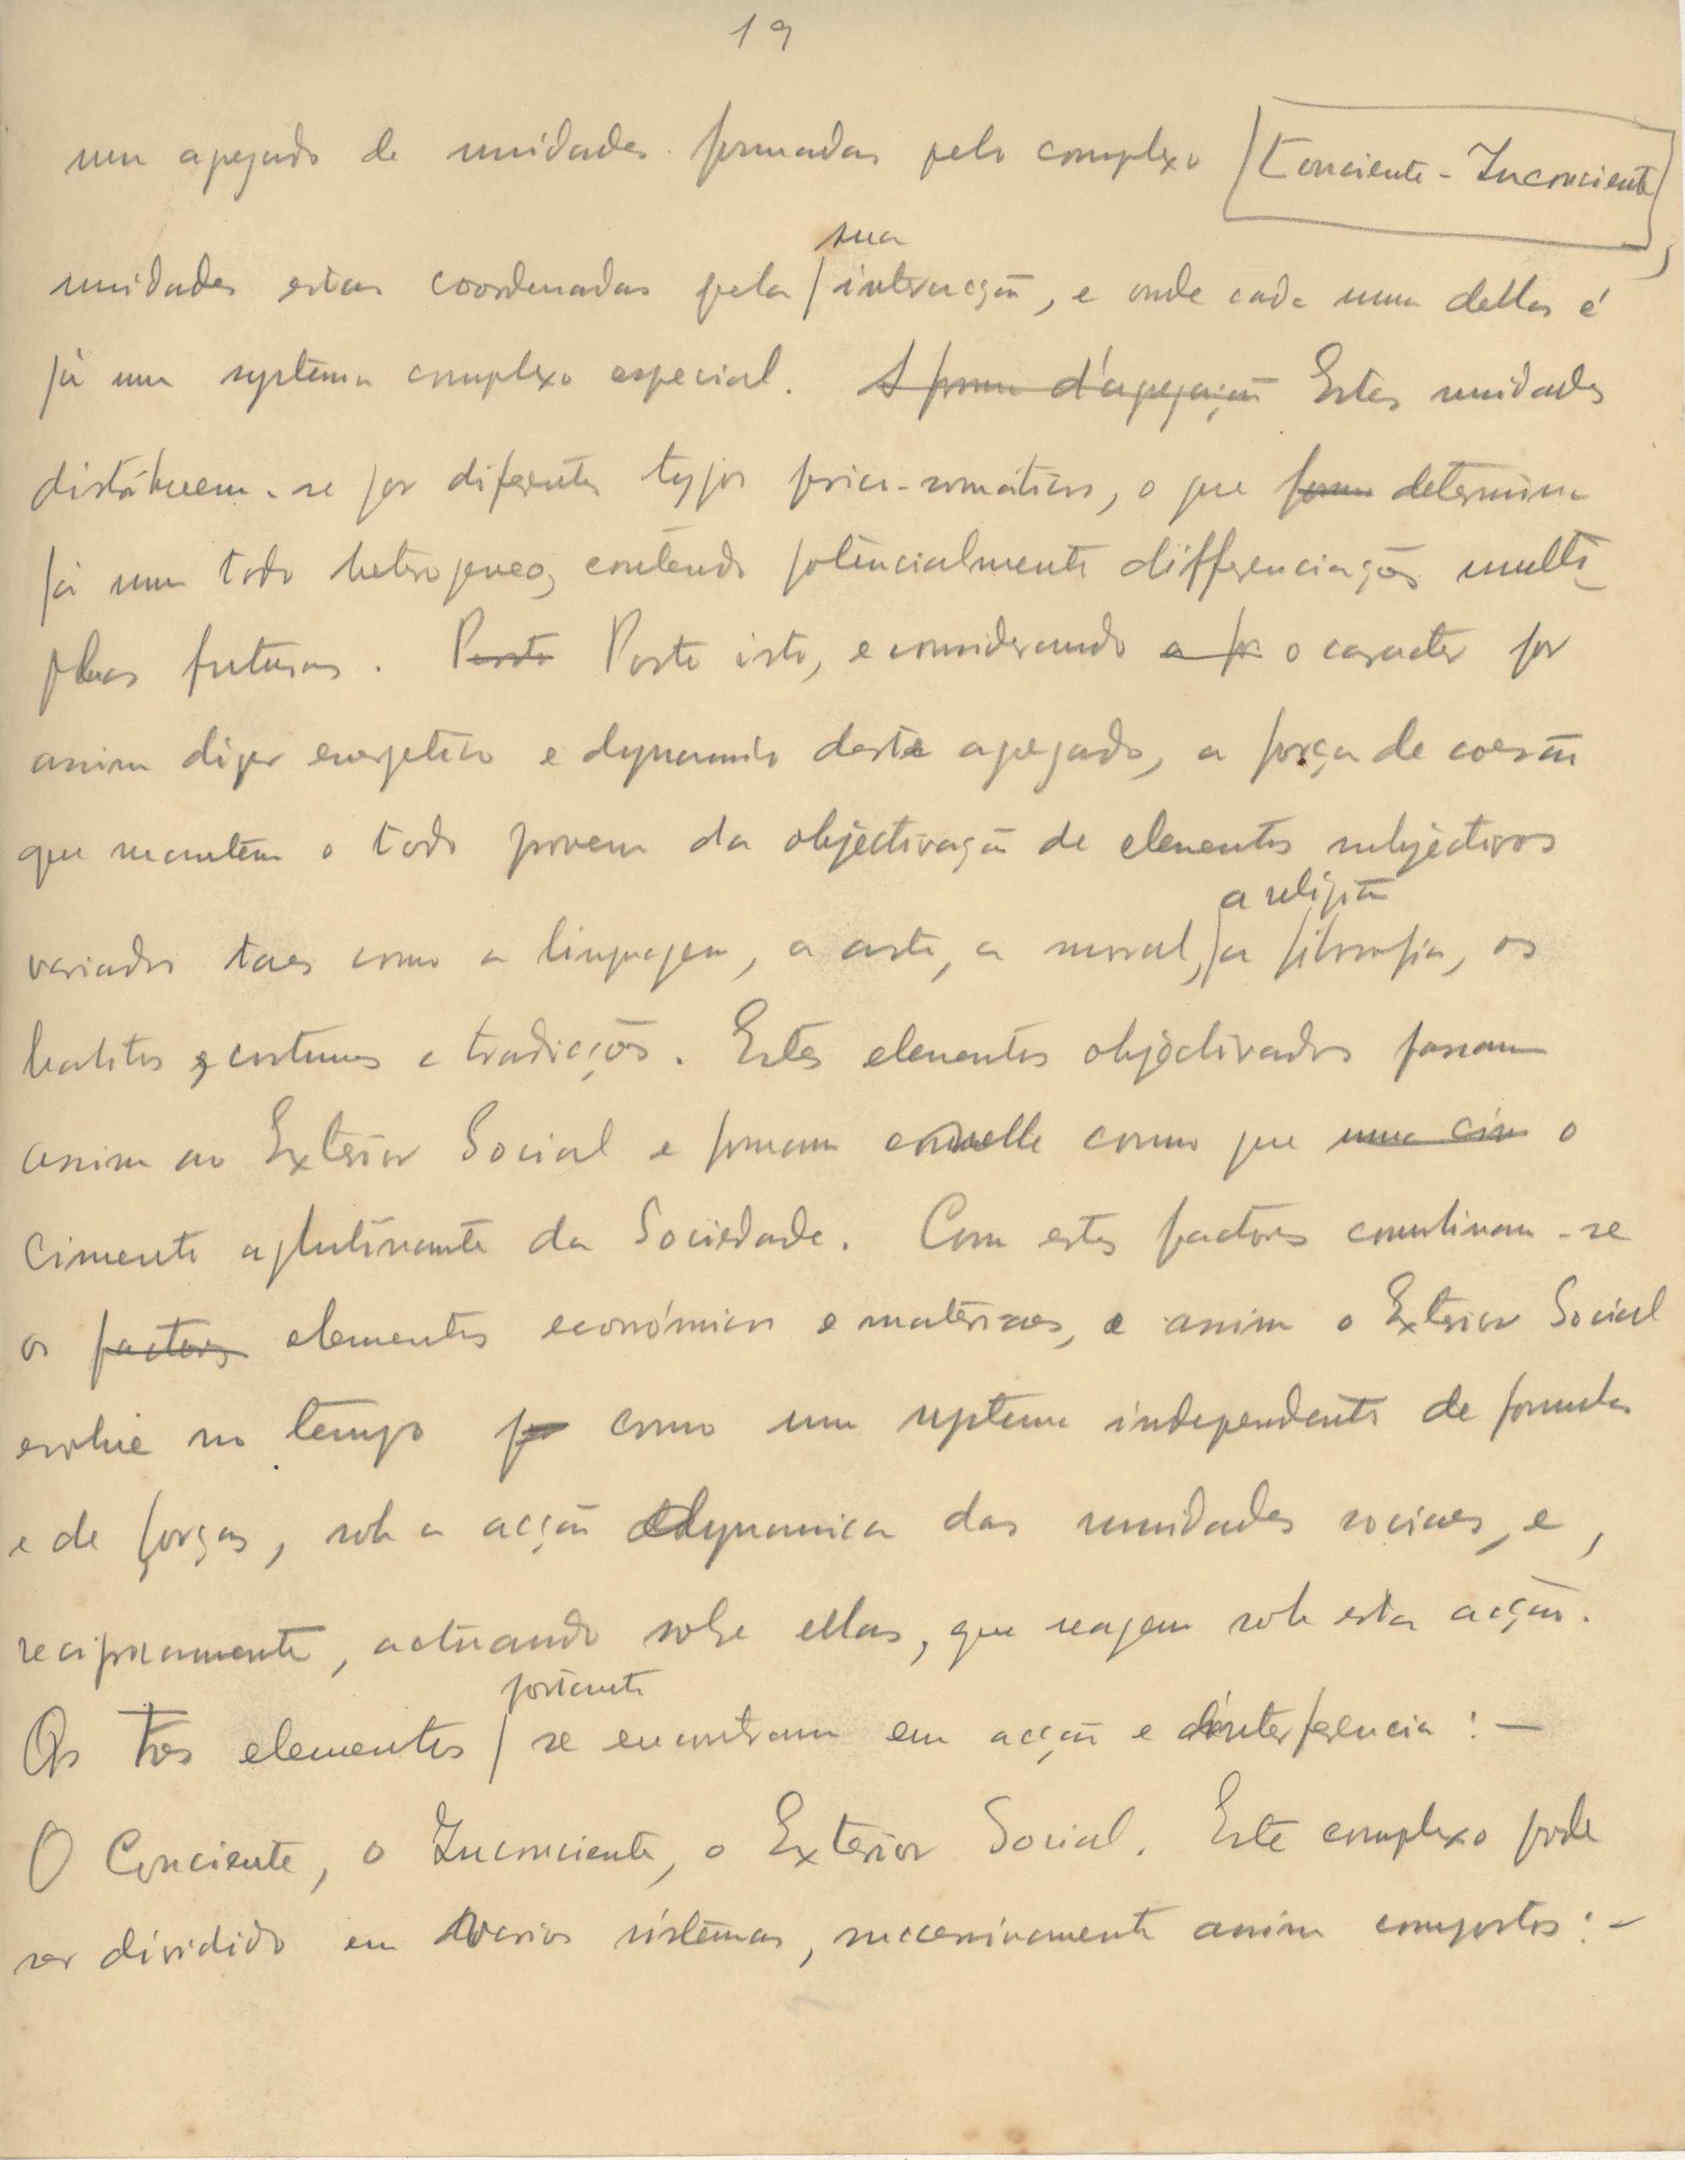 19
um agregado de unidades formadas pelo complexo Conciente - Inconciente,
sua
unidades estas coordenadas pela interacção, e onde cada uma dellas é
já um systema complexo especial. A forma d'agregação Estas unidades
distribuem-se por diferentes typos psico-somáticos, o que forma determina
já um todo heterogeneo, contendo potencialmente differenciações multi-
plas futuras. Posto Posto isto, e considerando a fo o caracter por
assim dizer energetico e dynamico deste agregado, a força de coesão
que mantém o todo provem da objectivação de elementos subjectivos
a religião
variados taes como a linguagem, a arte, a moral, a filosofia, os
habitos e costumes e tradicções. Estes elementos objectivados passam
assim ao Exterior Social e formam com elle como que uma cim o
cimento aglutinante da Sociedade. Com estes factores combinam-se
os factores elementos económicos e materiaes, e assim o Exterior Social
evolue no tempo como um systema independente de formulas
e de forças, sob a acção dynamica das unidades sociaes, e,
reciprocamente, actuando sobre ellas, que reagem sob esta acção.
portanto
Os Tres elementos se encontram em acção e interferencia: —
O Conciente, o Inconciente, o Exterior Social. Este complexo pode
ser dividido em varios sistemas, successivamente assim compostos: -